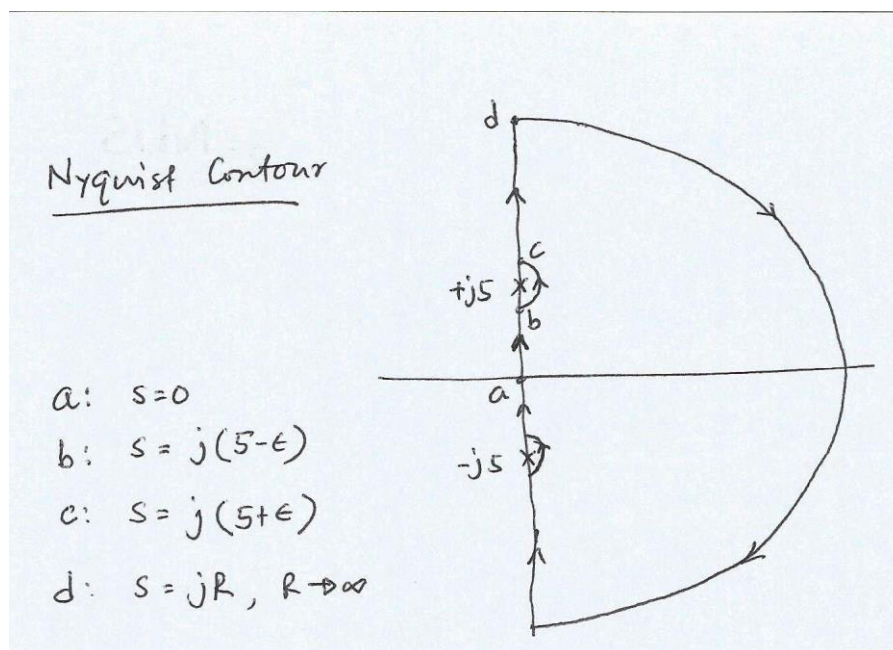 Nyquist Contour
a: s=0
b: s= j(5-ϵ)
c: s= j(5+ϵ)
d: s= jR, R→∞
d
c
+j5
b
a
-j5